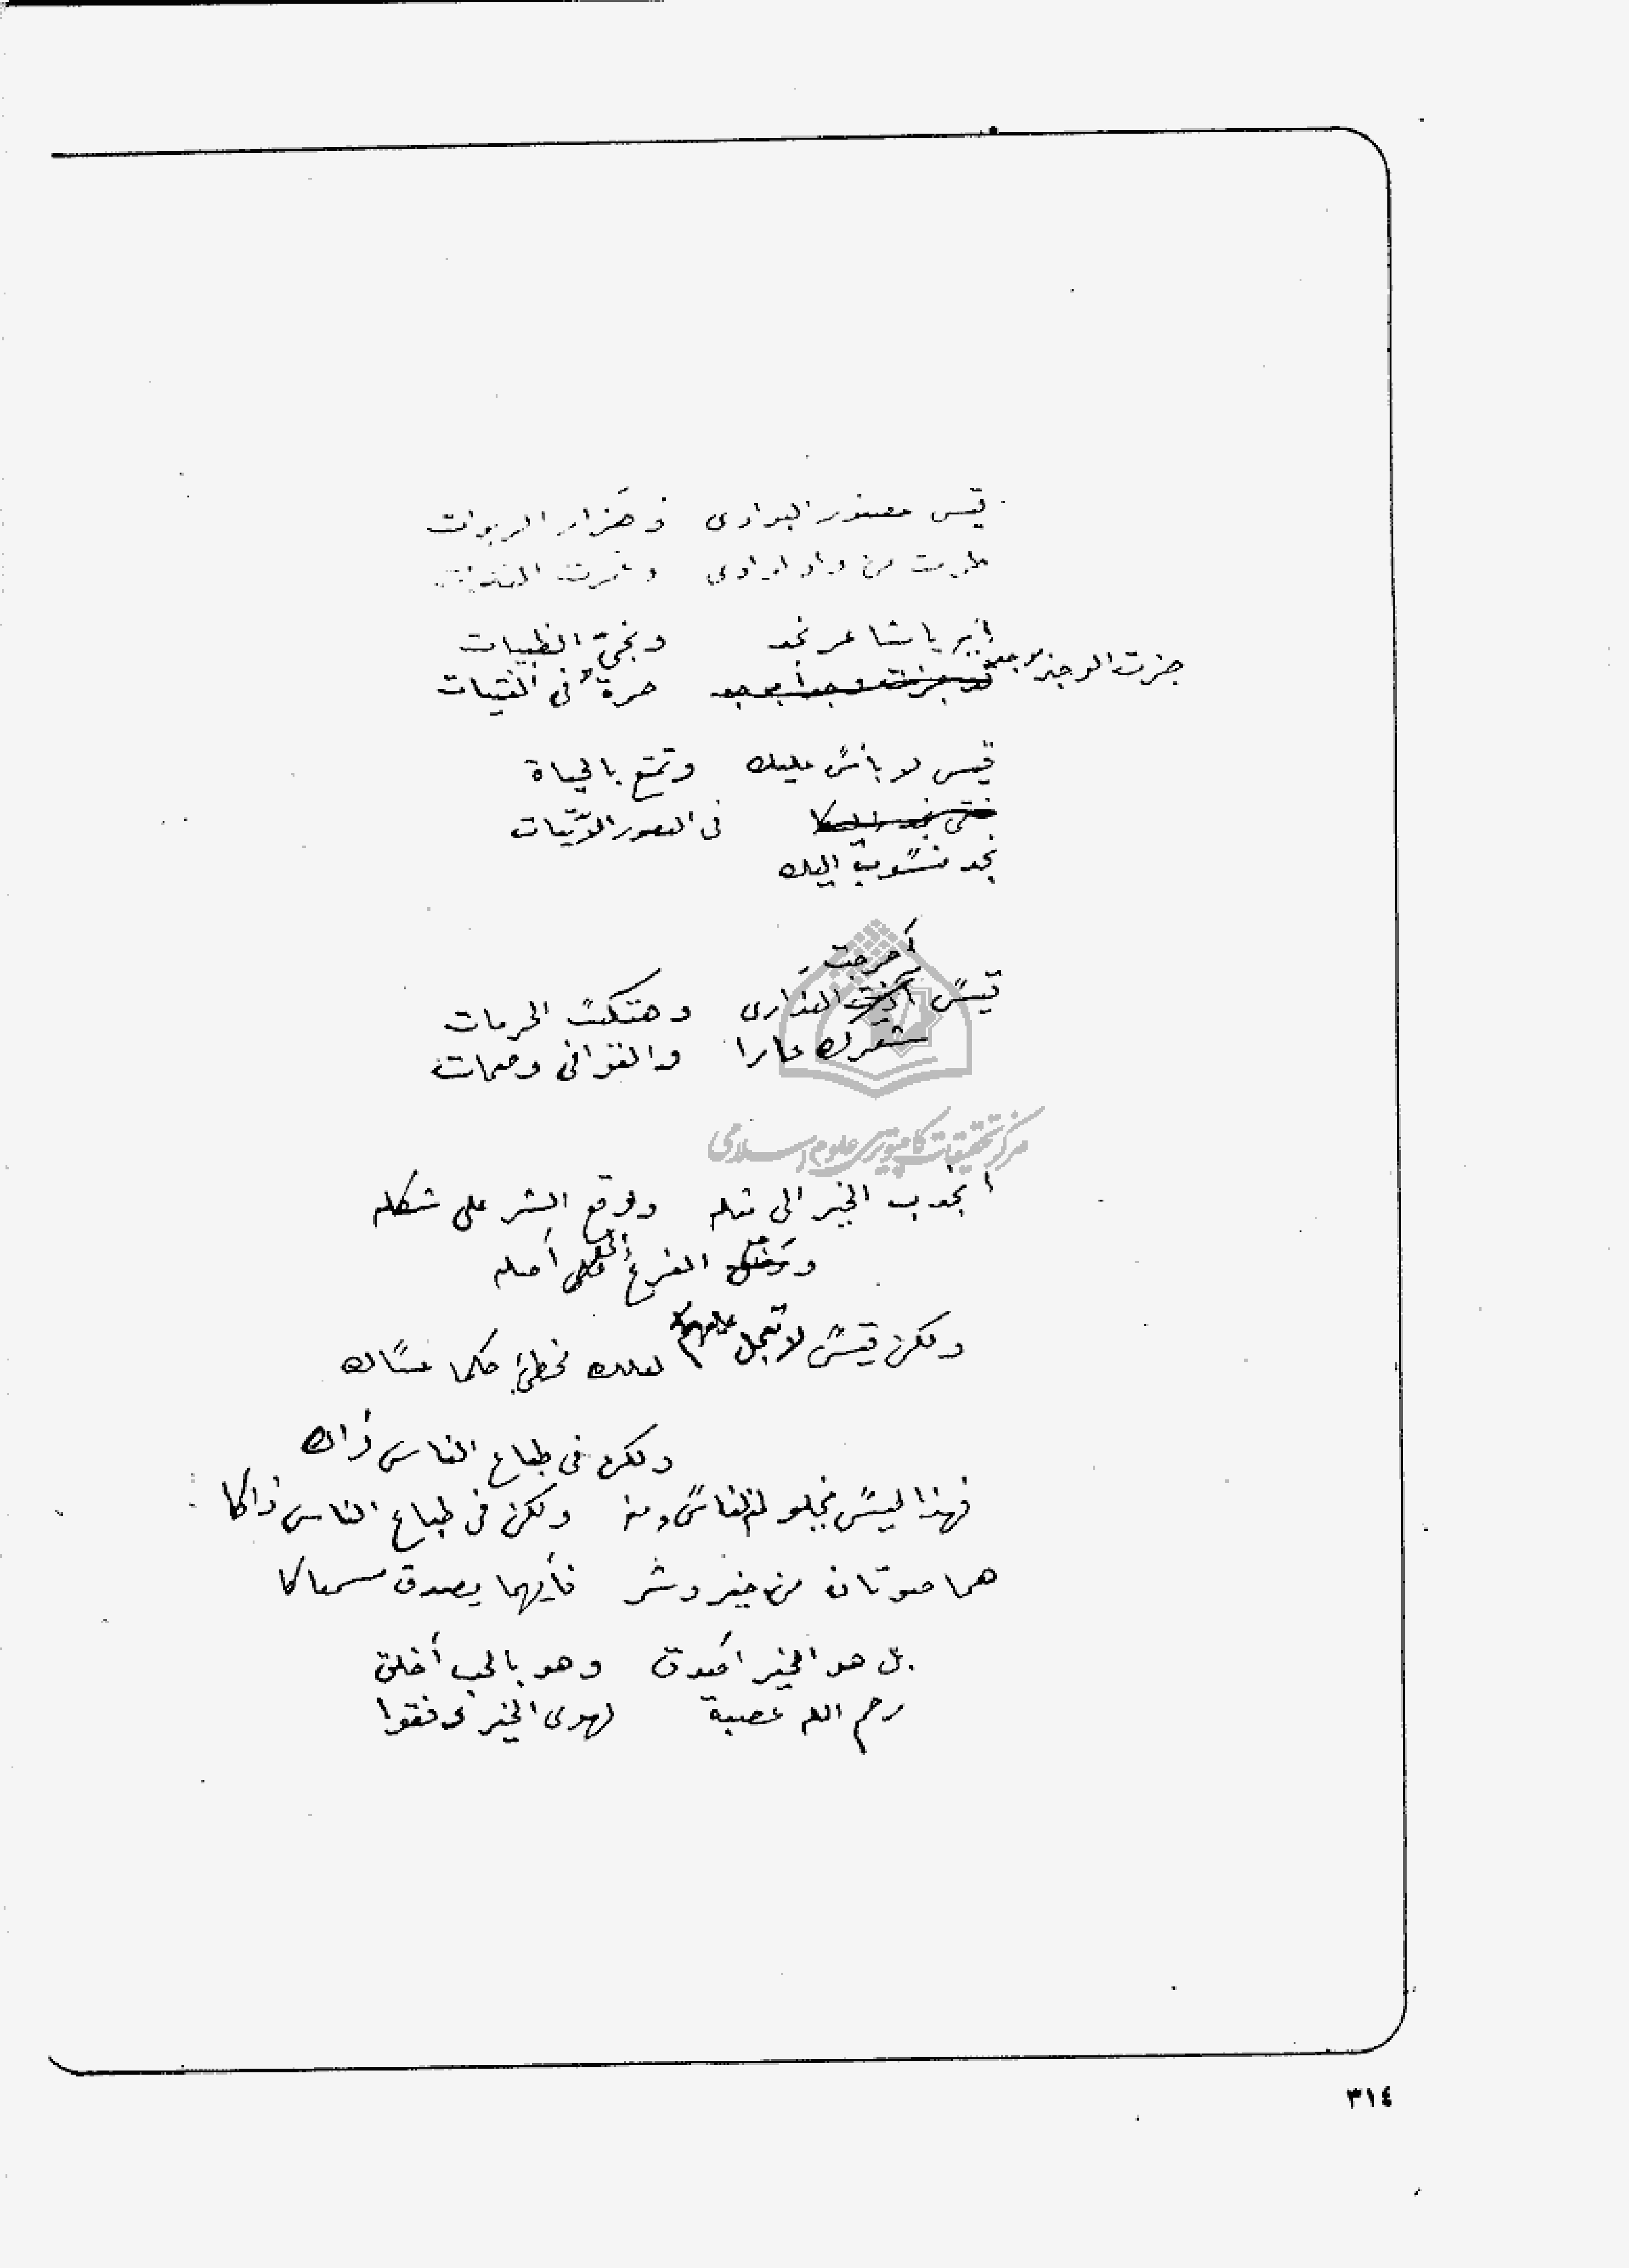 قيس عصفور البوادى وهَزار الربوات
طرت من واد لوادى وغمرت الفلوات
إيهِ يا شاعر نجد ونجىّ الظبيات
جزت الوجد بوجد
حرةٌ فى الفتيات
قيس لا بأس عليك وتمتع بالحياة
فى العصور الآتيات
نجد منسوب اليك
أحرجت
قيس العذارى وهتكت الحرمات
شعرك عارا والقوافى وصمات
انجذب الخير الى مثله ووقع الشر على شكله
الفرع الى أصله
ولكن قيس لا تعجل عليهم لعلك مخطئ حكما عساك
ولكن فى طباع الناس ذاك
فهذا ليس يخلو الناس منه ولكن فى طباع الناس ذاكا
هما صوتان من خير وشر فأيهما يصدق مسمعاكا
بل هو الخير أصدق وهو بالحب أخلق
رحم الله عصبة لهوى الخير وفقوا
مركز تحقيقات كامپيوترى علوم اسلامى
٣١٤